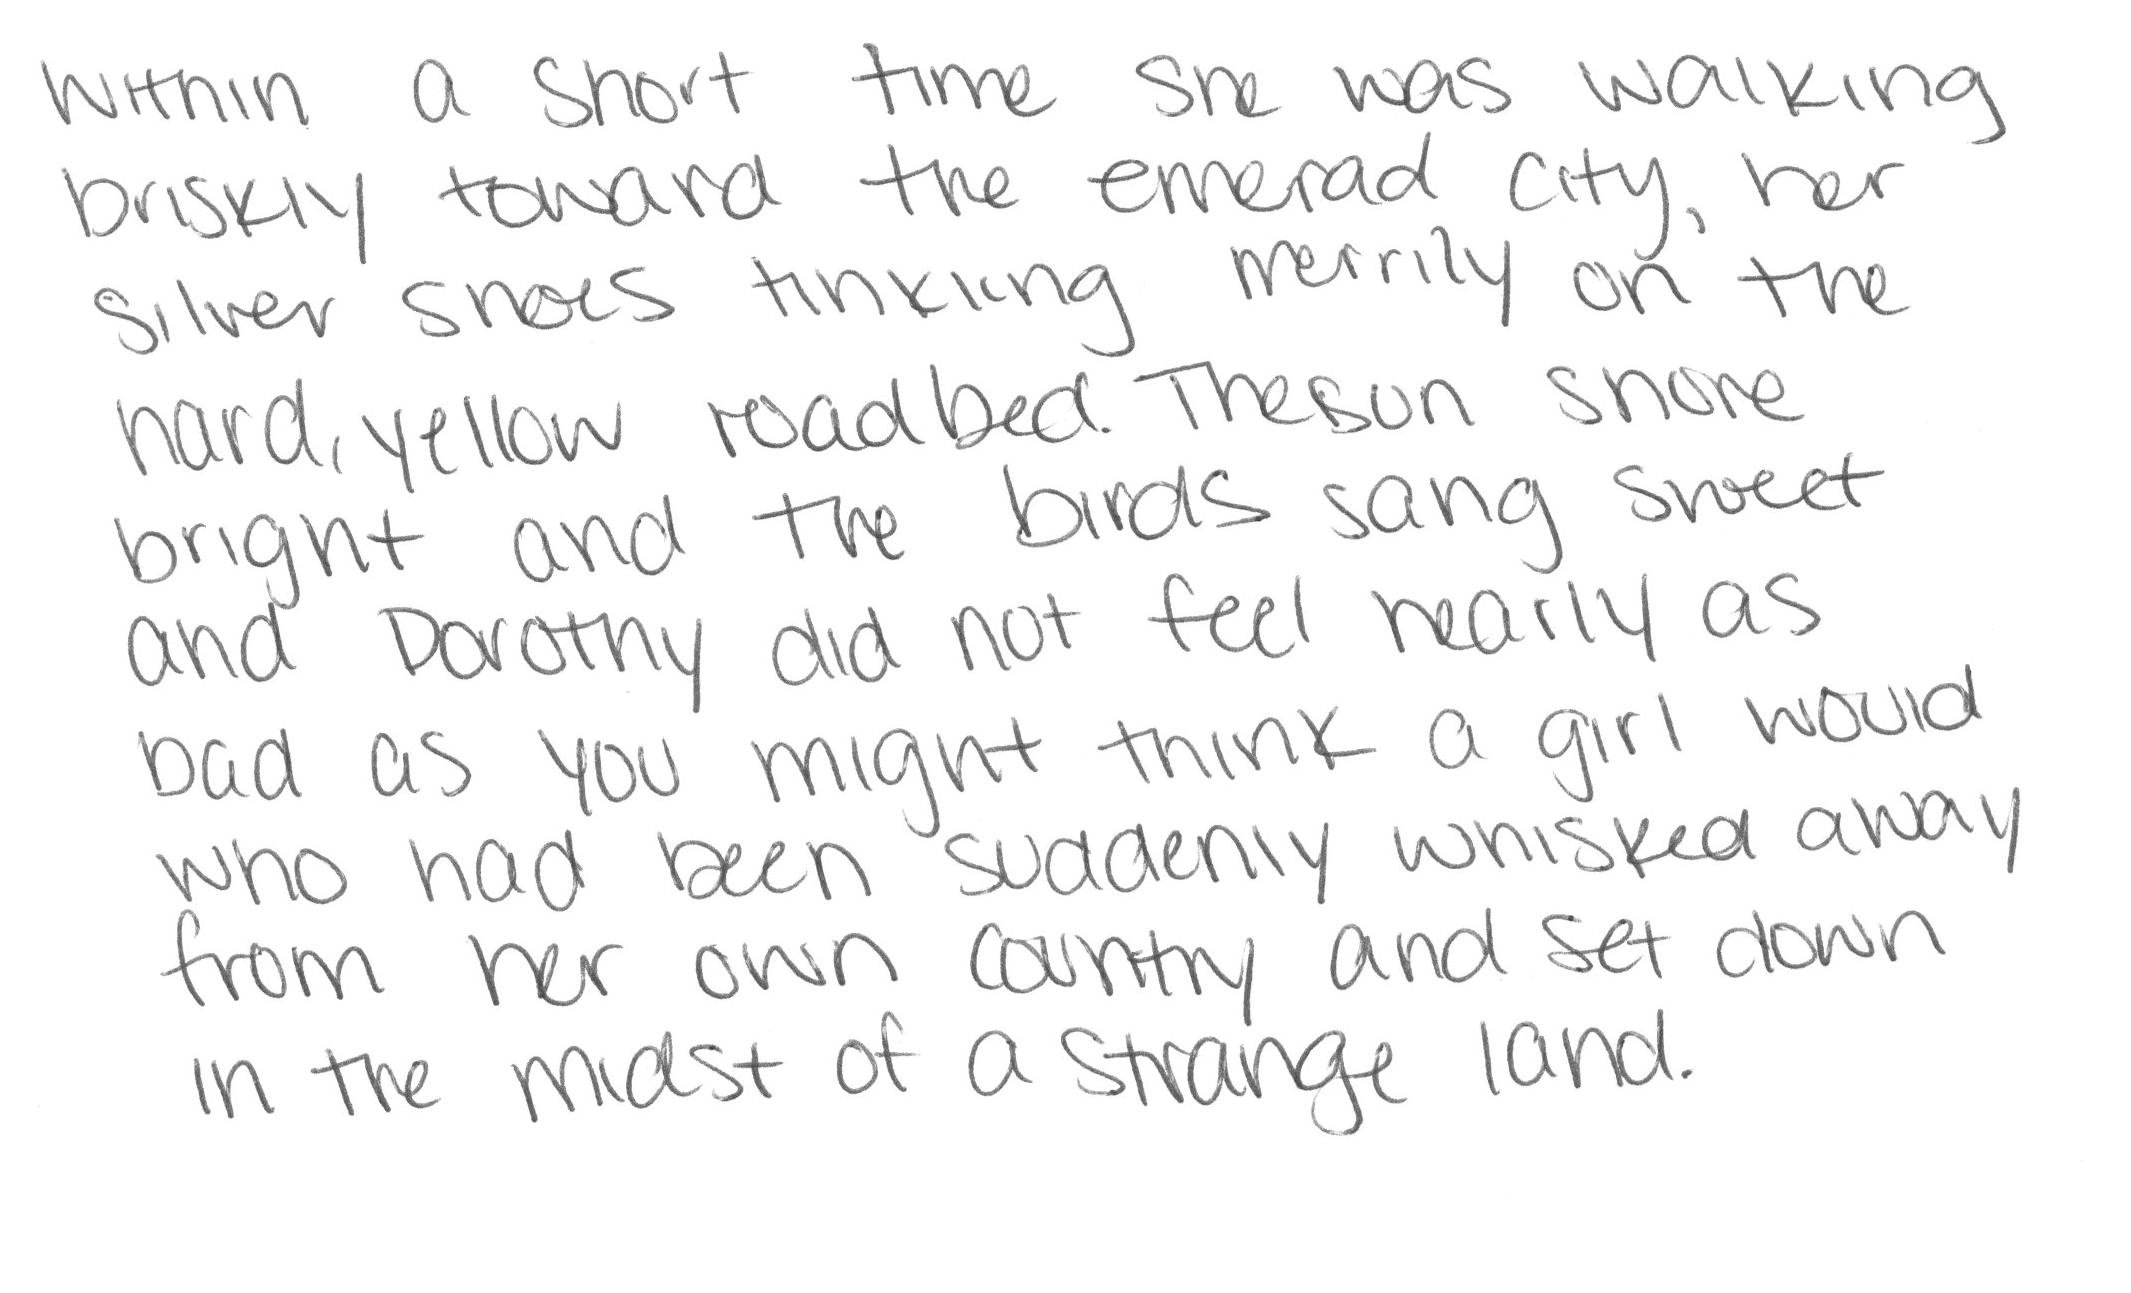 Within a short time she was walking
briskly toward the emerad city, her
silver shoes tinkling merrily on the
hard, yellow roadbed. The sun shone
bright and the birds sang sweet
and Dorothy did not feel nearly as
bad as you might think a girl would
who had been suddenly whisked away
from her own country and set down
in the midst of a strange land.